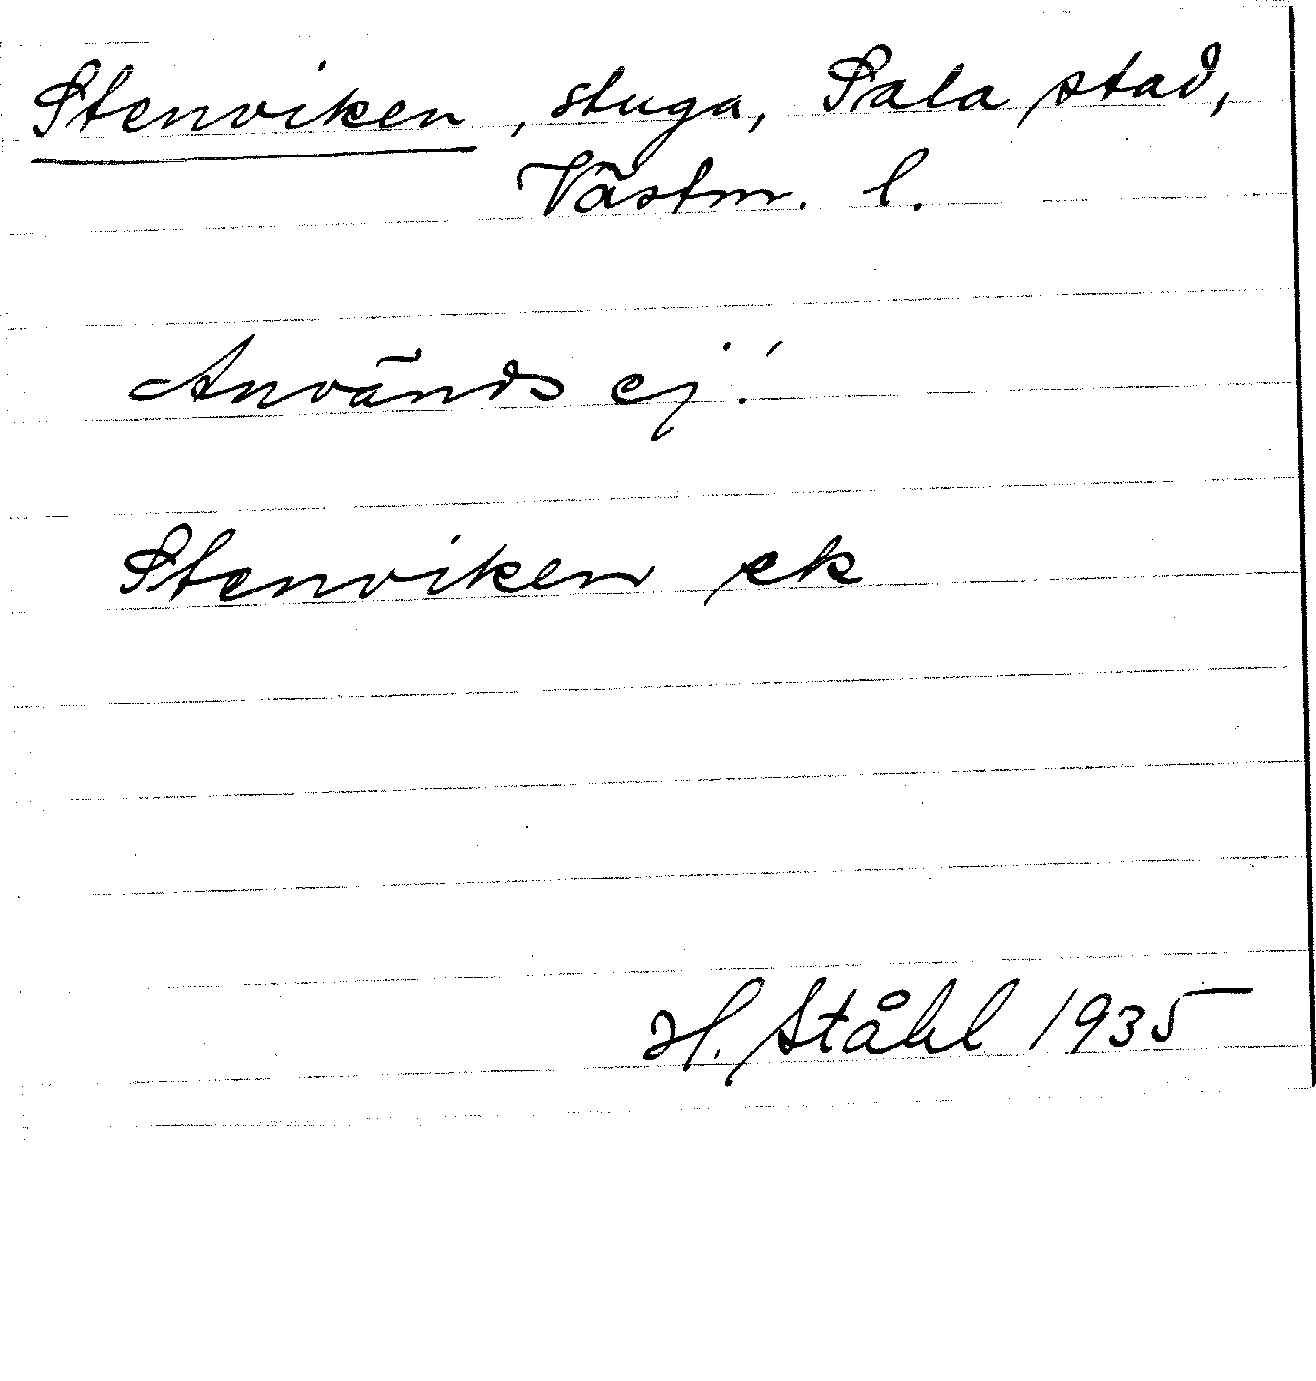 Stenviken, stuga, Sala stad,
Västm. l.
Används ej!
Stenviken ek
H. Ståhl 1935